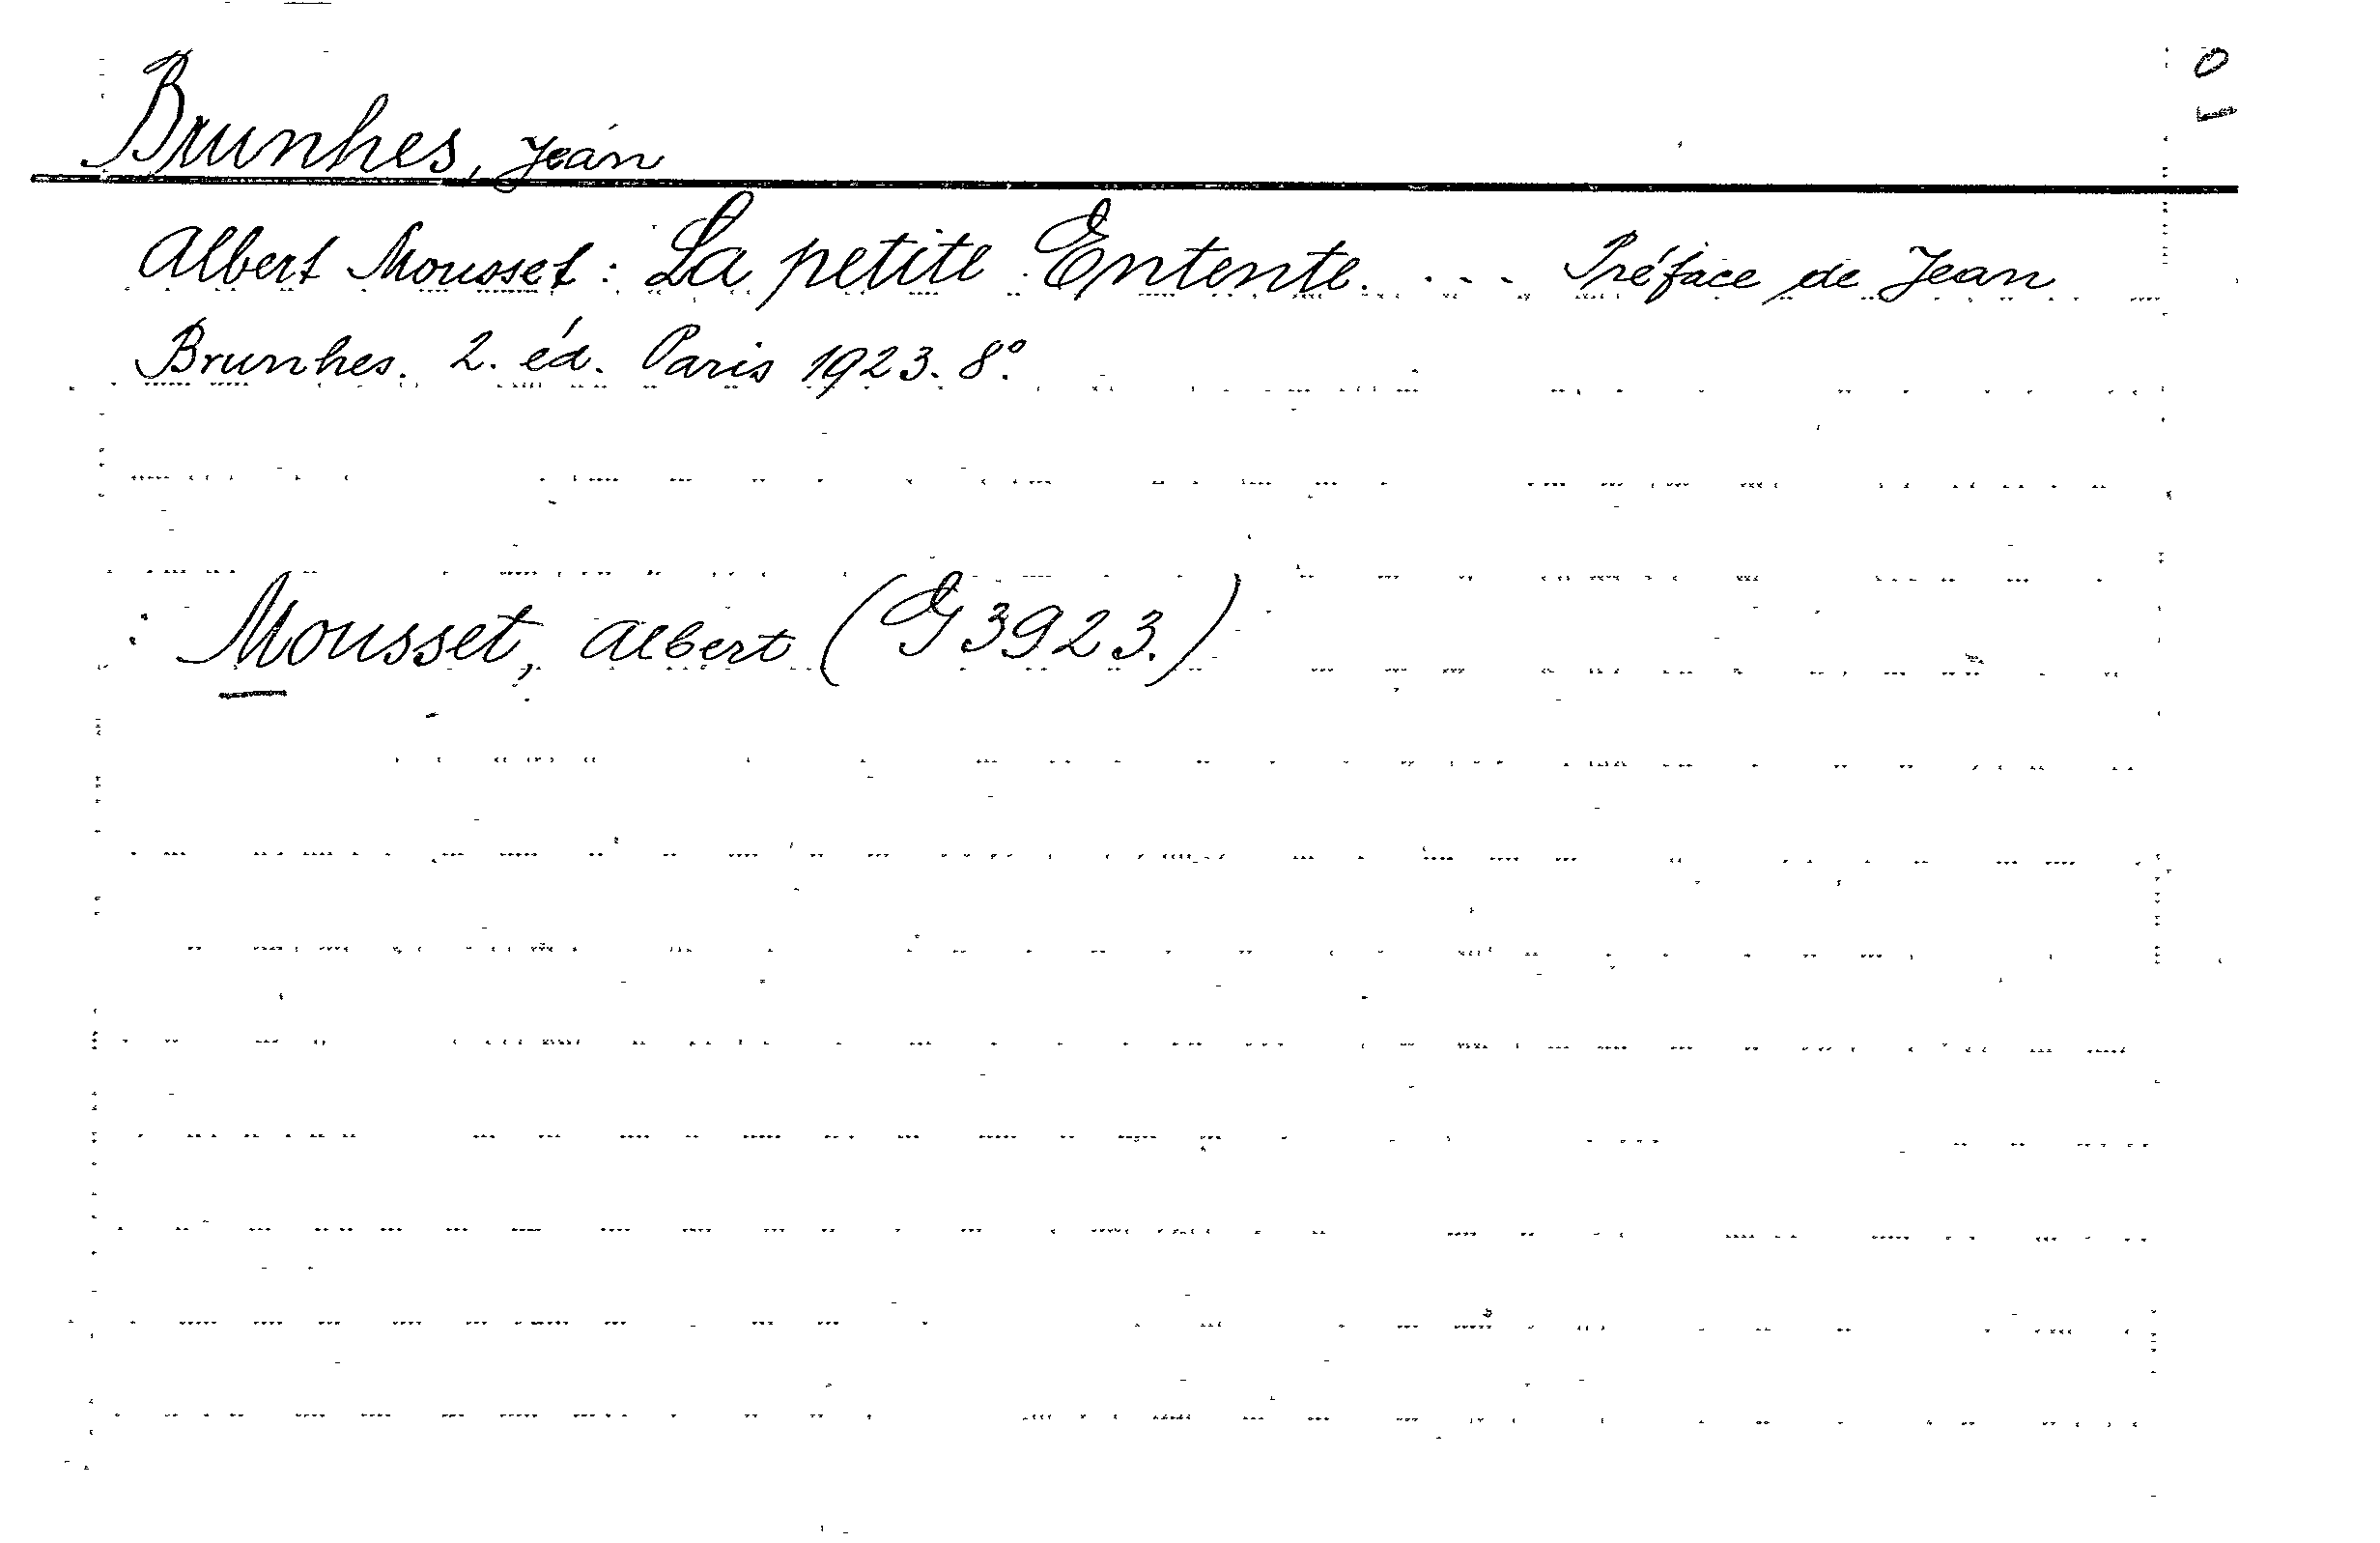 Brunhes, Jean
Albert Mousset: La petite Entente. . - - Préface de Jean
Brunhes. 2. éd. Paris 1923. 8º.
: Mousset, Albert (G 3923.)